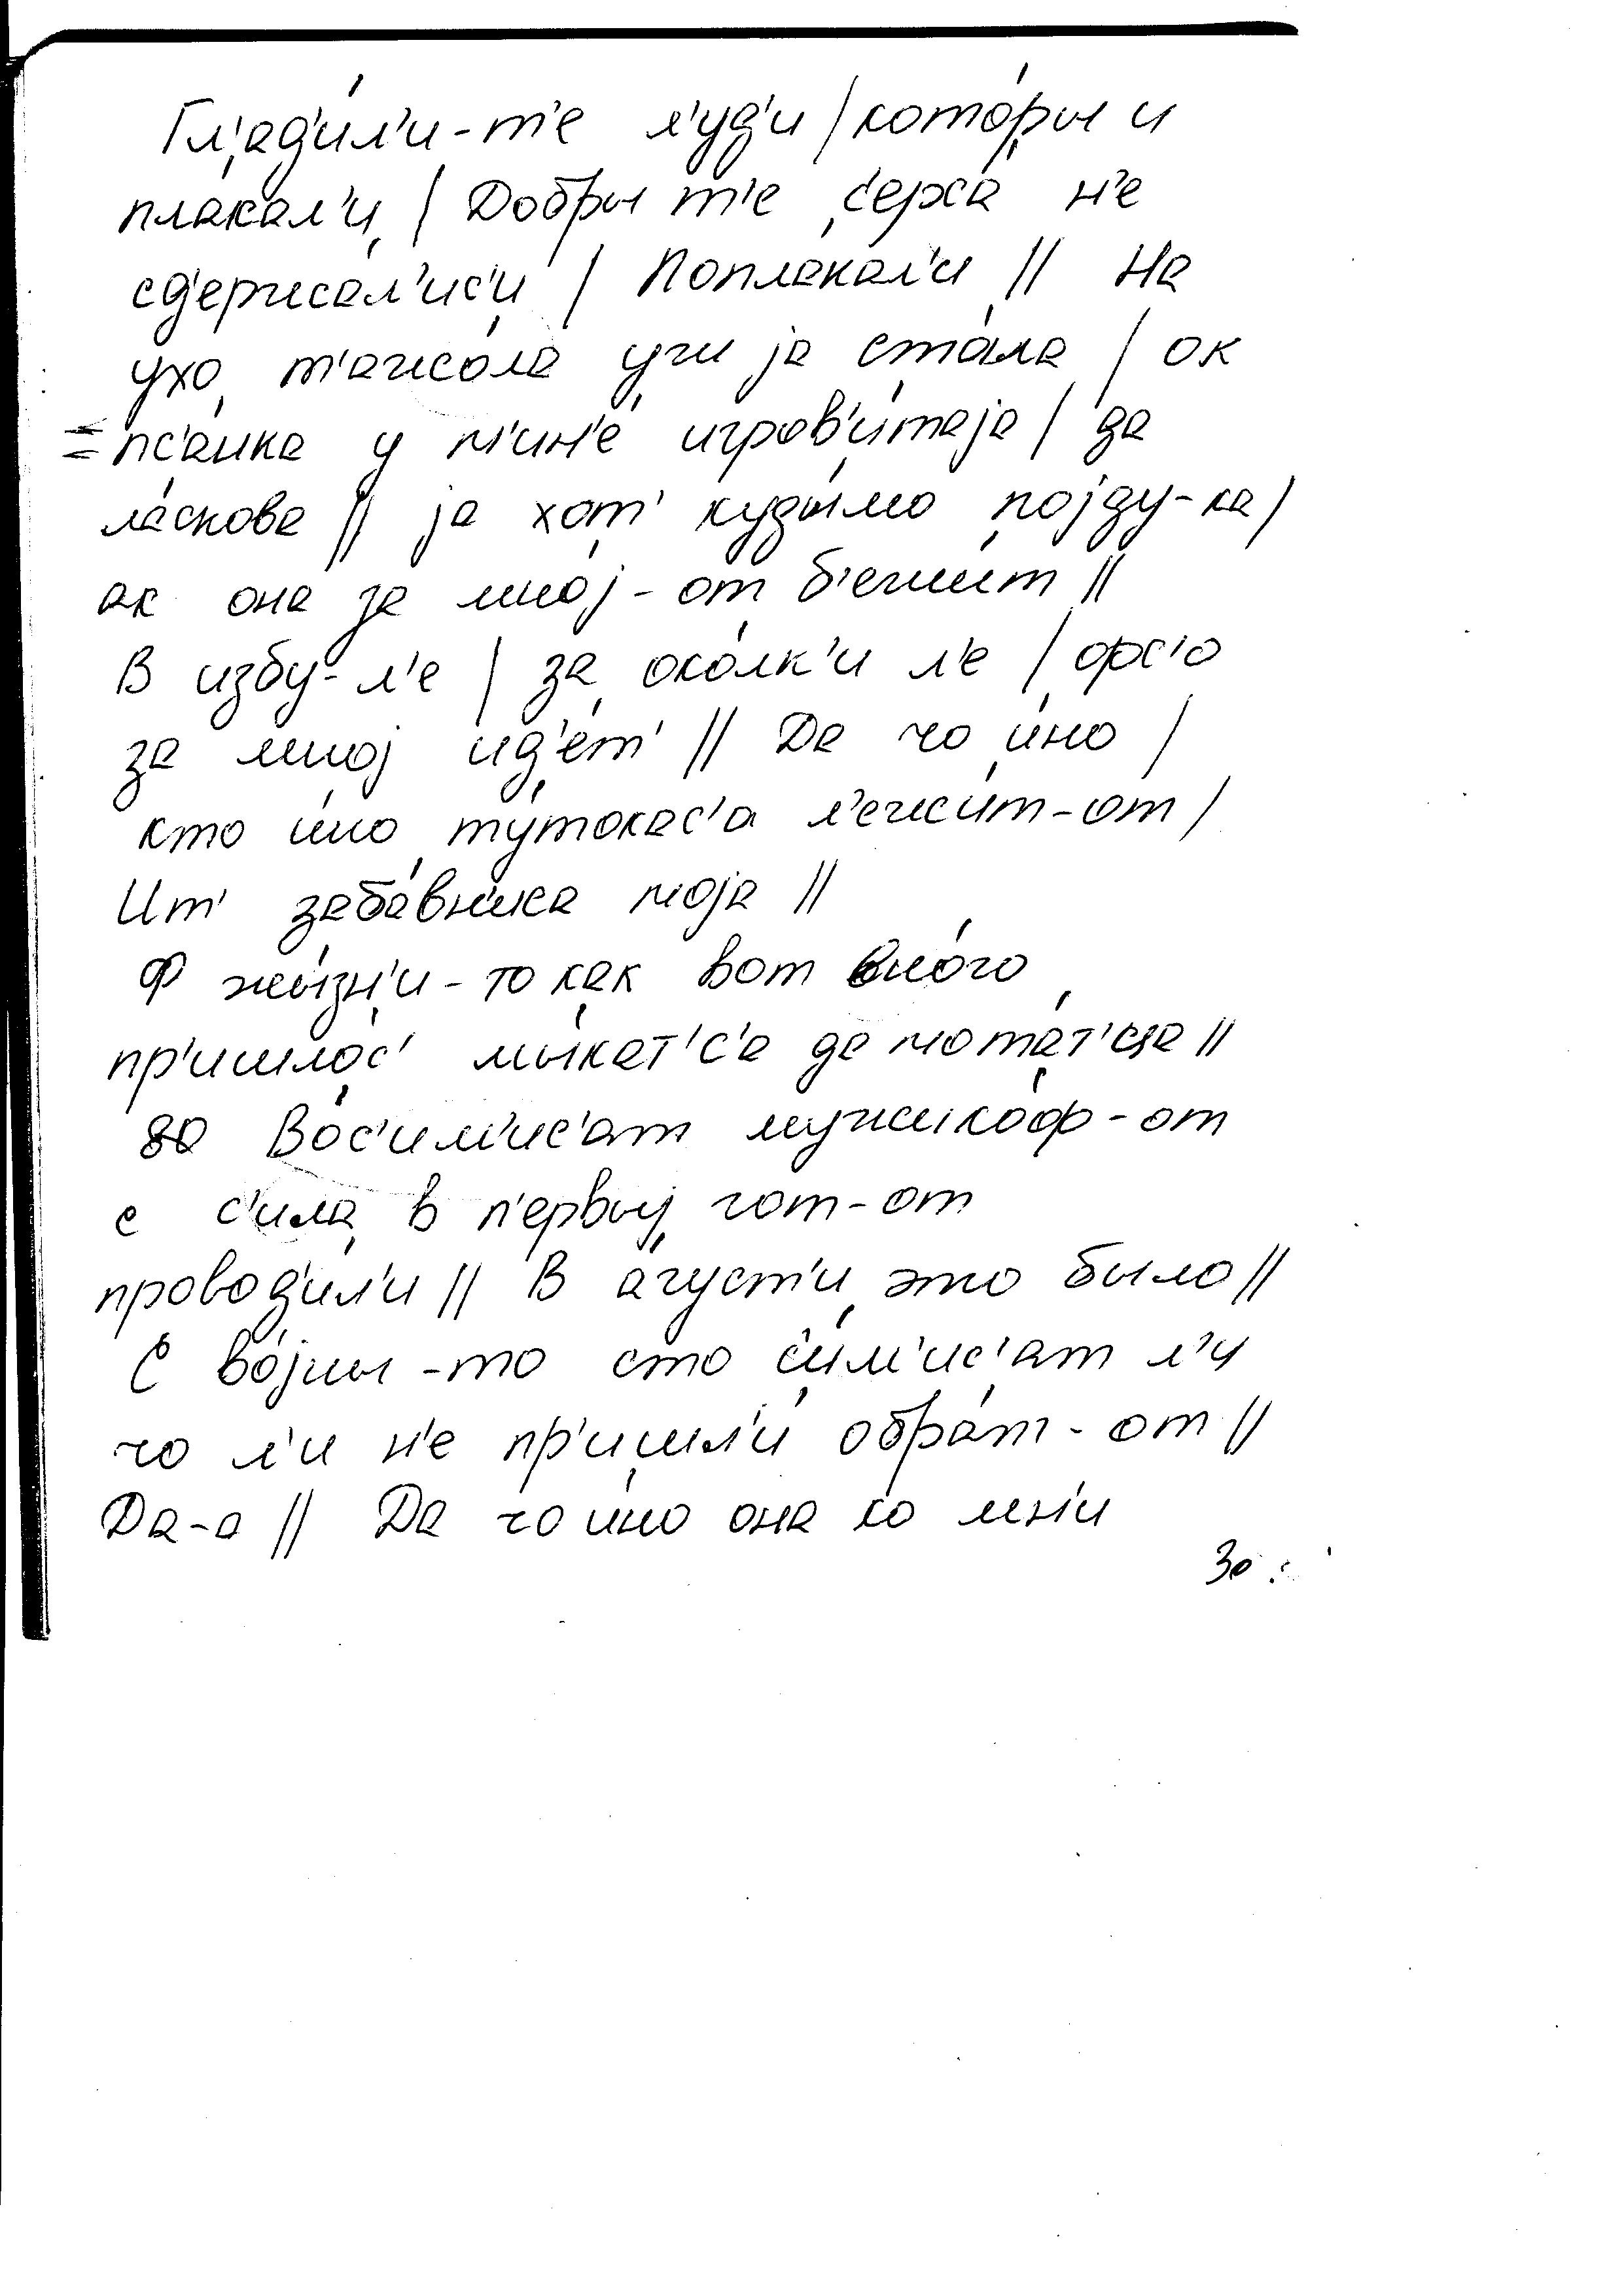 Гл'ад'ил'и-т'е л'уд'и / которы и
плакал'и / Добры т'е с'ерса н'е
сд'ержал'ис'и / Поплакал'и // На
ухо т'ажола ужи jа стала / ок
= пс'анка у м'ин'е игров'итаjа / да
ласкова // jа хот' кудымо поjду-ка /
ак она за мноj-от б'ежит //
В избу-л'е / за околк'и л'е / офс'о
за мноj ид'ет' // Да чо ино /
кто ино тутокас'а л'ежит-от /
Ит' забавн'ика моjа //
Ф жызн'и-то как вот много
пр'ишлос' мыкат'с'а да мотат'ца //
80 Вос'им'ис'ат мужикоф-от
с с'ила в п'ервыj гот-от
проводил'и // В агуст'и это было //
С воjны-то сто с'им'ис'ат л'и
чо л'и н'е пр'ишл'и обрат-от //
Да-а // Да чо ино она ко мн'и
30